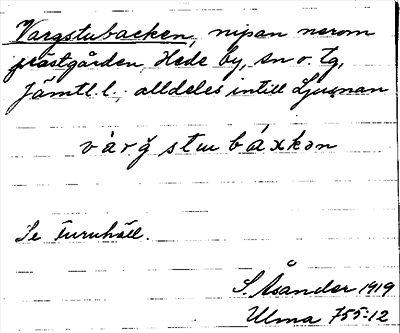 Vargstubacken, nipan nerom
prästgården, Hede by, sn o. tg,
Jämtl. l., alldeles intill Ljusnan
várğ stɯ báxkən
Se Furuhäll.
S Åsander 1919
Ulma 755:12